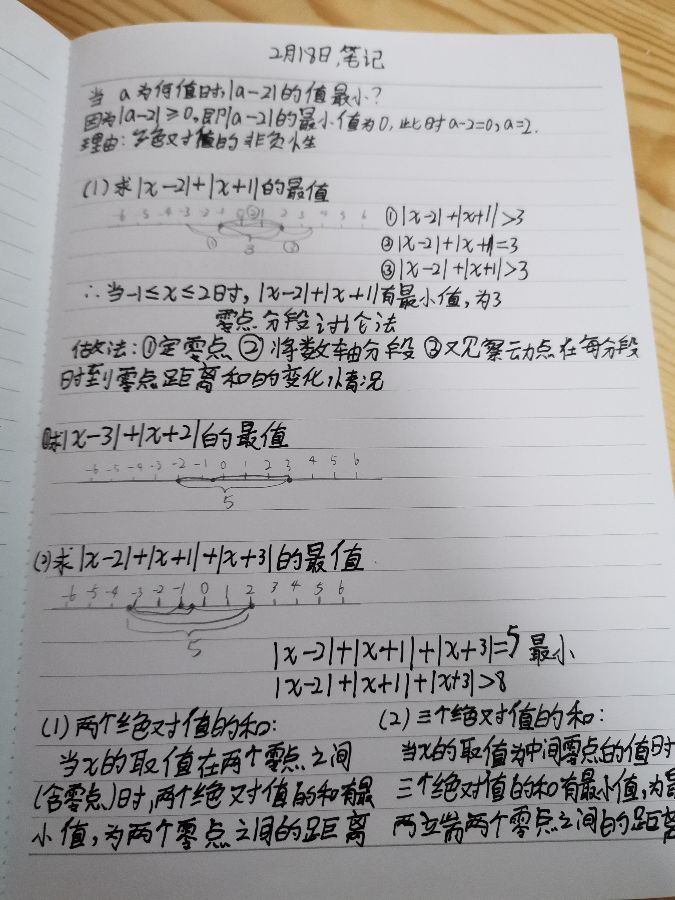 2月18日,笔记
当 a为何值时,|a-2|的值最小?
因为|a-2|≥0,即|a-2|的最小值为0,此时a-2=0,a=2.
理由:绝对值的非负性
(1)求|x-2|+|x+1|的最值
-6 -5 -4 -3 -2 -1 0 1 2 3 4 5 6
① ② ③
3
①|x-2|+|x+1|>3
②|x-2|+|x+1|=3
③|x-2|+|x+1|>3
∴当-1≤x≤2时,|x-2|+|x+1|有最小值,为3
零点分段讨论法
做法:①定零点 ②将数轴分段 ③观察动点在每分段
时到零点距离和的变化情况
求|x-3|+|x+2|的最值
-6 -5 -4 -3 -2 -1 0 1 2 3 4 5 6
5
(2)求|x-2|+|x+1|+|x+3|的最值
-6 -5 -4 -3 -2 -1 0 1 2 3 4 5 6
5
|x-2|+|x+1|+|x+3|=5 最小
|x-2|+|x+1|+|x+3|>8
(1)两个绝对值的和:
当x的取值在两个零点之间
(含零点)时,两个绝对值的和有最
小值,为两个零点之间的距离
(2)三个绝对值的和:
当x的取值为中间零点的值时
三个绝对值的和有最小值,为
两端两个零点之间的距离